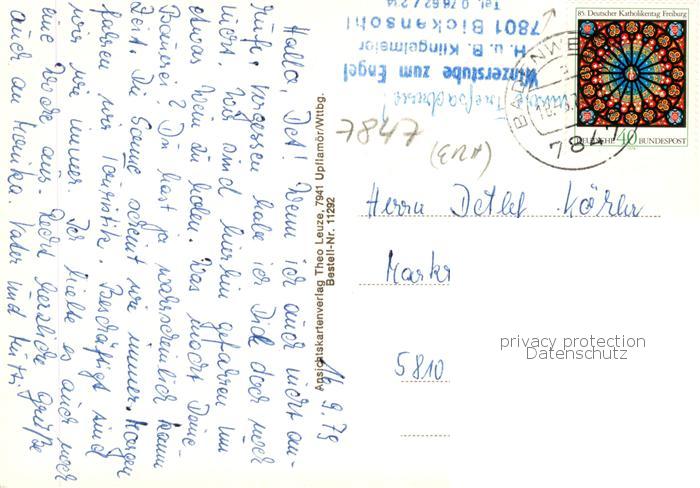 16.9.79
Hallo, Det! Wenn ich auch nicht an-
rufe, vergessen habe ich Dich doch noch
nicht. Wir sind hierhin gefahren um
etwas Wein zu holen. Was macht Deine
Zeit. Die Sonne scheint wie immer. Morgen
fahren wir Touristik. Beschäftigt sind
wir wie immer. Ich hielte es auch noch
eine Woche aus. Recht herzliche Grüße
auch an Monika. Vater und Mutti
Ansichtskartenverlag Theo Leuze, 7941 Upflamör/Wttbg.
Bestell-Nr. 11292
Winzerstube zum Engel
H. u. B. Klingelmeier
7801 Bickensohl
Tel. 0 76 62 / 214
7847
(ERA)
85. Deutscher Katholikentag Freiburg
DEUTSCHE BUNDESPOST
40
BADENWEILER
7847
Herrn Detlef
Markt
5810
privacy protection
Datenschutz